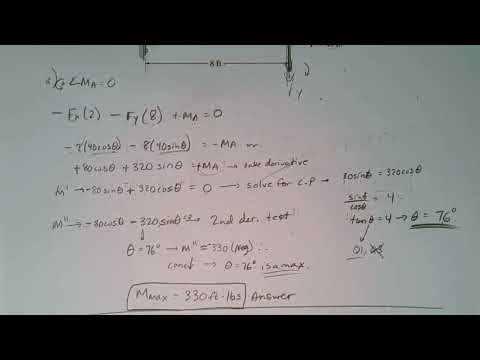 8 ft
Fy
a) ΣMA = 0
- Fx(2) - Fy(8) + MA = 0
- 2(40cosθ) - 8(40sinθ) = -MA or
+80cosθ + 320sinθ = +MA → take derivative
M' → -80sinθ + 320cosθ = 0 → solve for C.P → 80sinθ = 320cosθ
sinθ/cosθ = 4
tanθ = 4 → θ = 76°
Q1,
M'' → -80cosθ - 320sinθ → 2nd der. test
θ = 76° → M'' = 330 (neg) ∴
concl → θ = 76° is a max.
Mmax = 330 ft·lbs Answer